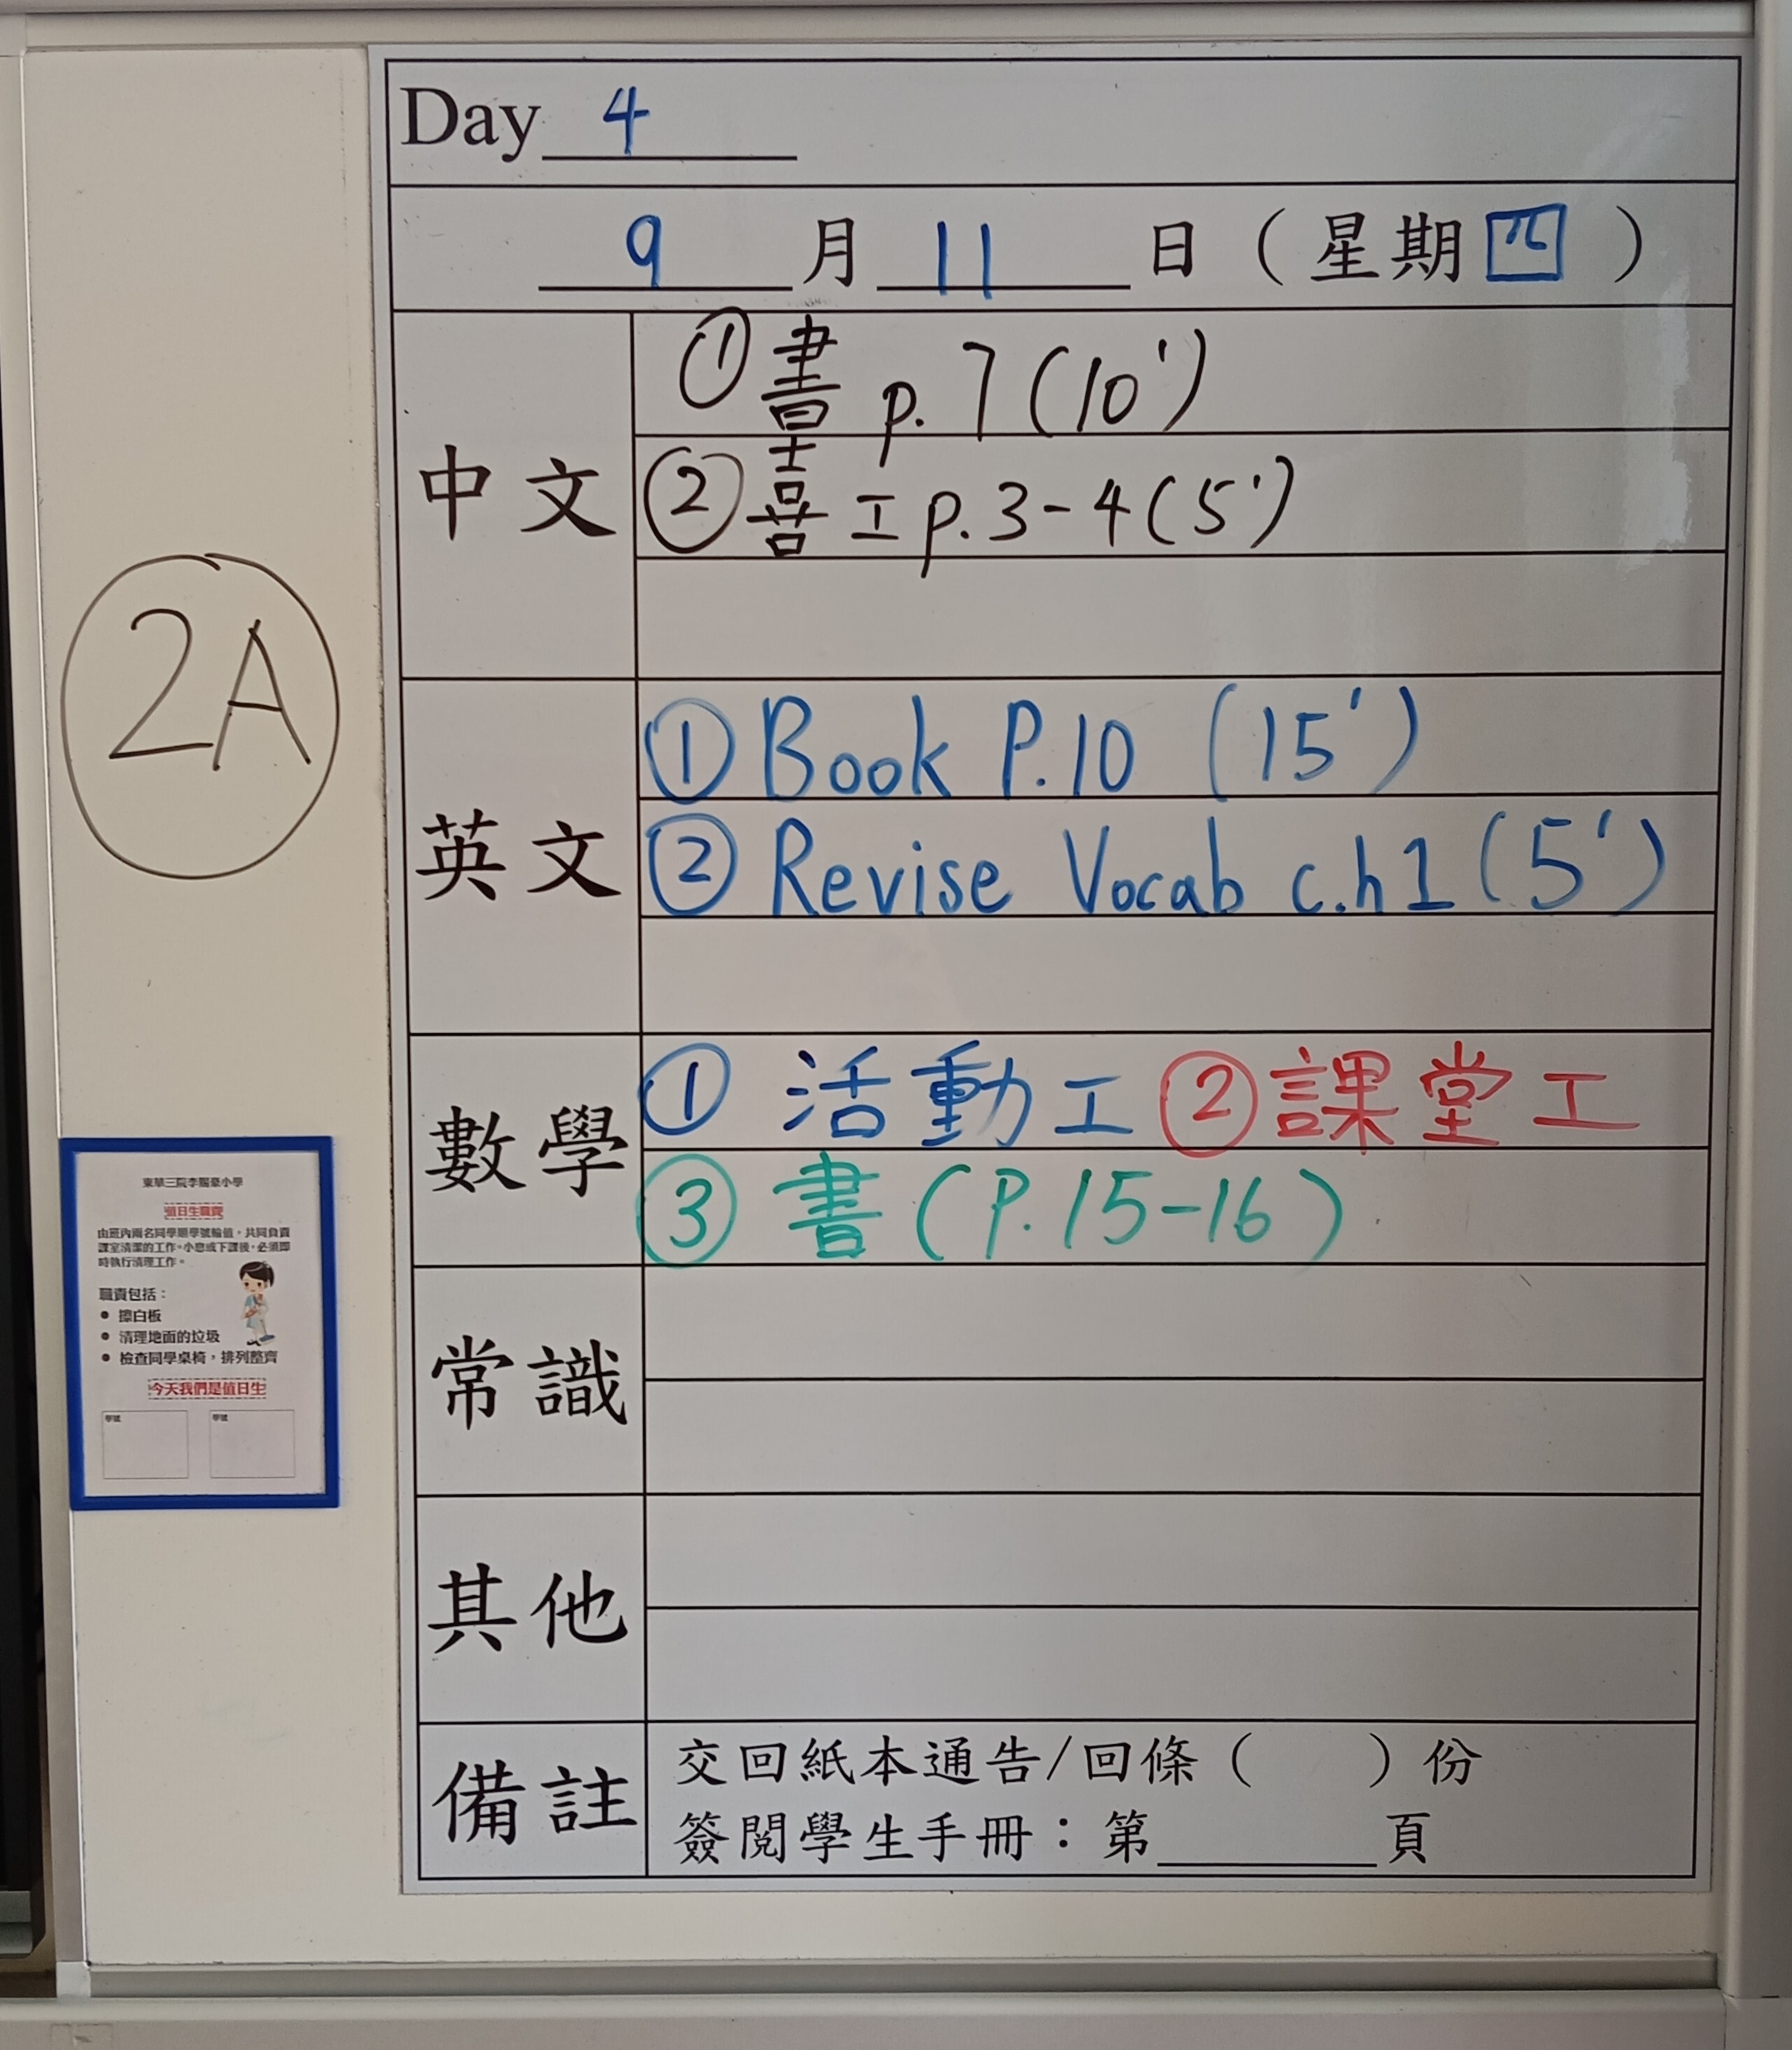 Day 4
9 月 11 日 (星期四)
中文
① 書 p.7 (10')
② 喜工 p.3-4 (5')
英文
① Book P.10 (15')
② Revise Vocab c.h1 (5')
數學
① 活動工 ② 課堂工
③ 書 (P.15-16)
常識
其他
備註
交回紙本通告/回條( )份
簽閱學生手冊：第 頁
2A
東華三院李賜豪小學
值日生職責
由班內兩名同學順學號輪值，共同負責
課室清潔的工作。小息或下課後，必須即
時執行清理工作。
職責包括：
● 擦白板
● 清理地面的垃圾
● 檢查同學桌椅，排列整齊
今天我們是值日生
學號 學號